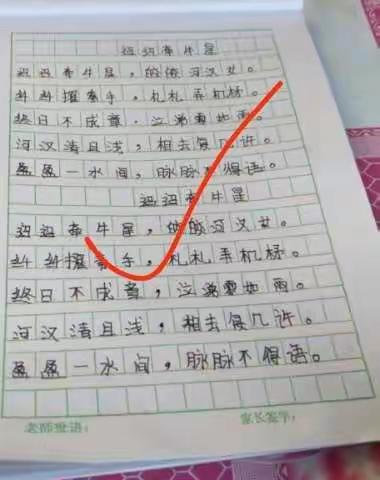 迢迢牵牛星
迢迢牵牛星，皎皎河汉女。
纤纤擢素手，札札弄机杼。
终日不成章，泣涕零如雨。
河汉清且浅，相去复几许。
盈盈一水间，脉脉不得语。
迢迢牵牛星
迢迢牵牛星，皎皎河汉女。
纤纤擢素手，札札弄机杼。
终日不成章，泣涕零如雨。
河汉清且浅，相去复几许。
盈盈一水间，脉脉不得语。
老师批语： 家长签字：